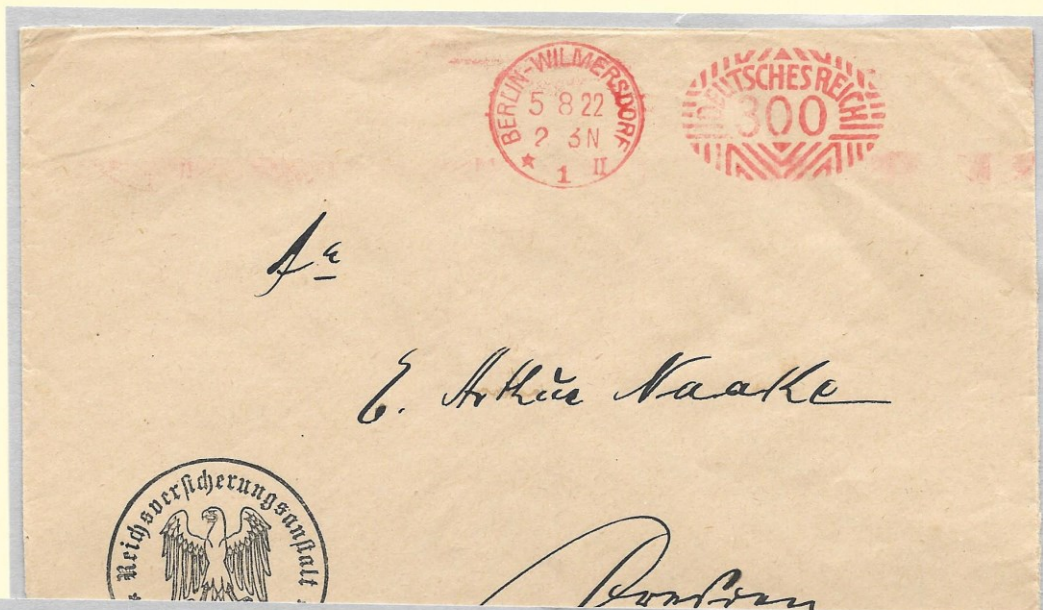 BERLIN-WILMERSDORF
5 8 22
2 3N
* 1 II
DEUTSCHES REICH
300
E. Arthur Naake
Reichsversicherungsanstalt
Dresden